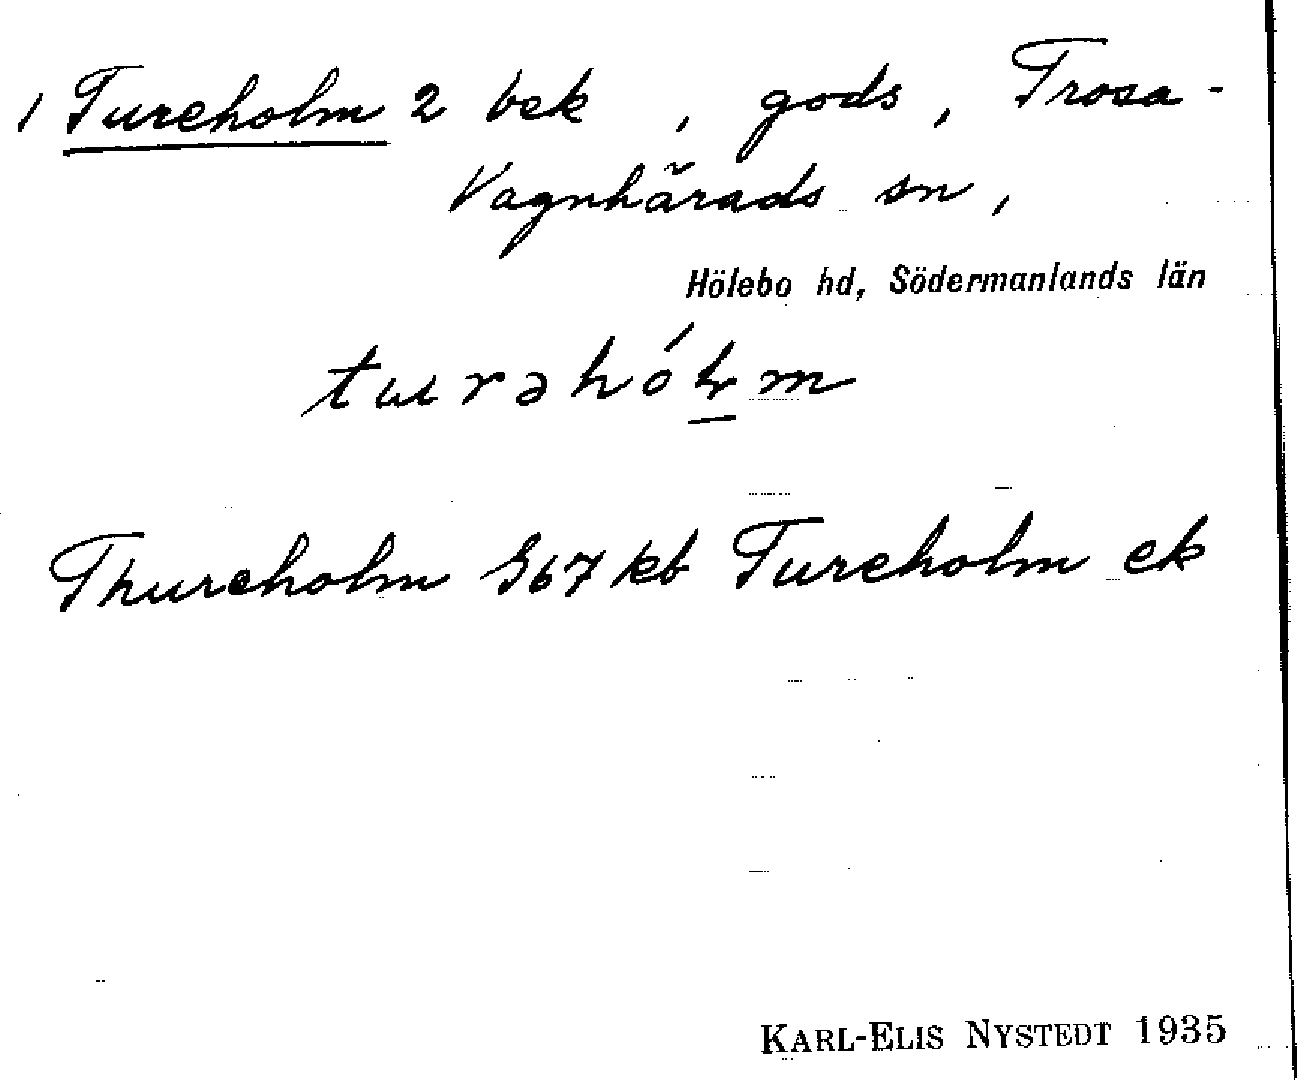 1 Tureholm 2 bek, gods, Trosa-
Vagnhärads sn,
Hölebo hd, Södermanlands län
turəhó
Thureholm S67 kb Tureholm ek
KARL-ELIS NYSTEDT 1935